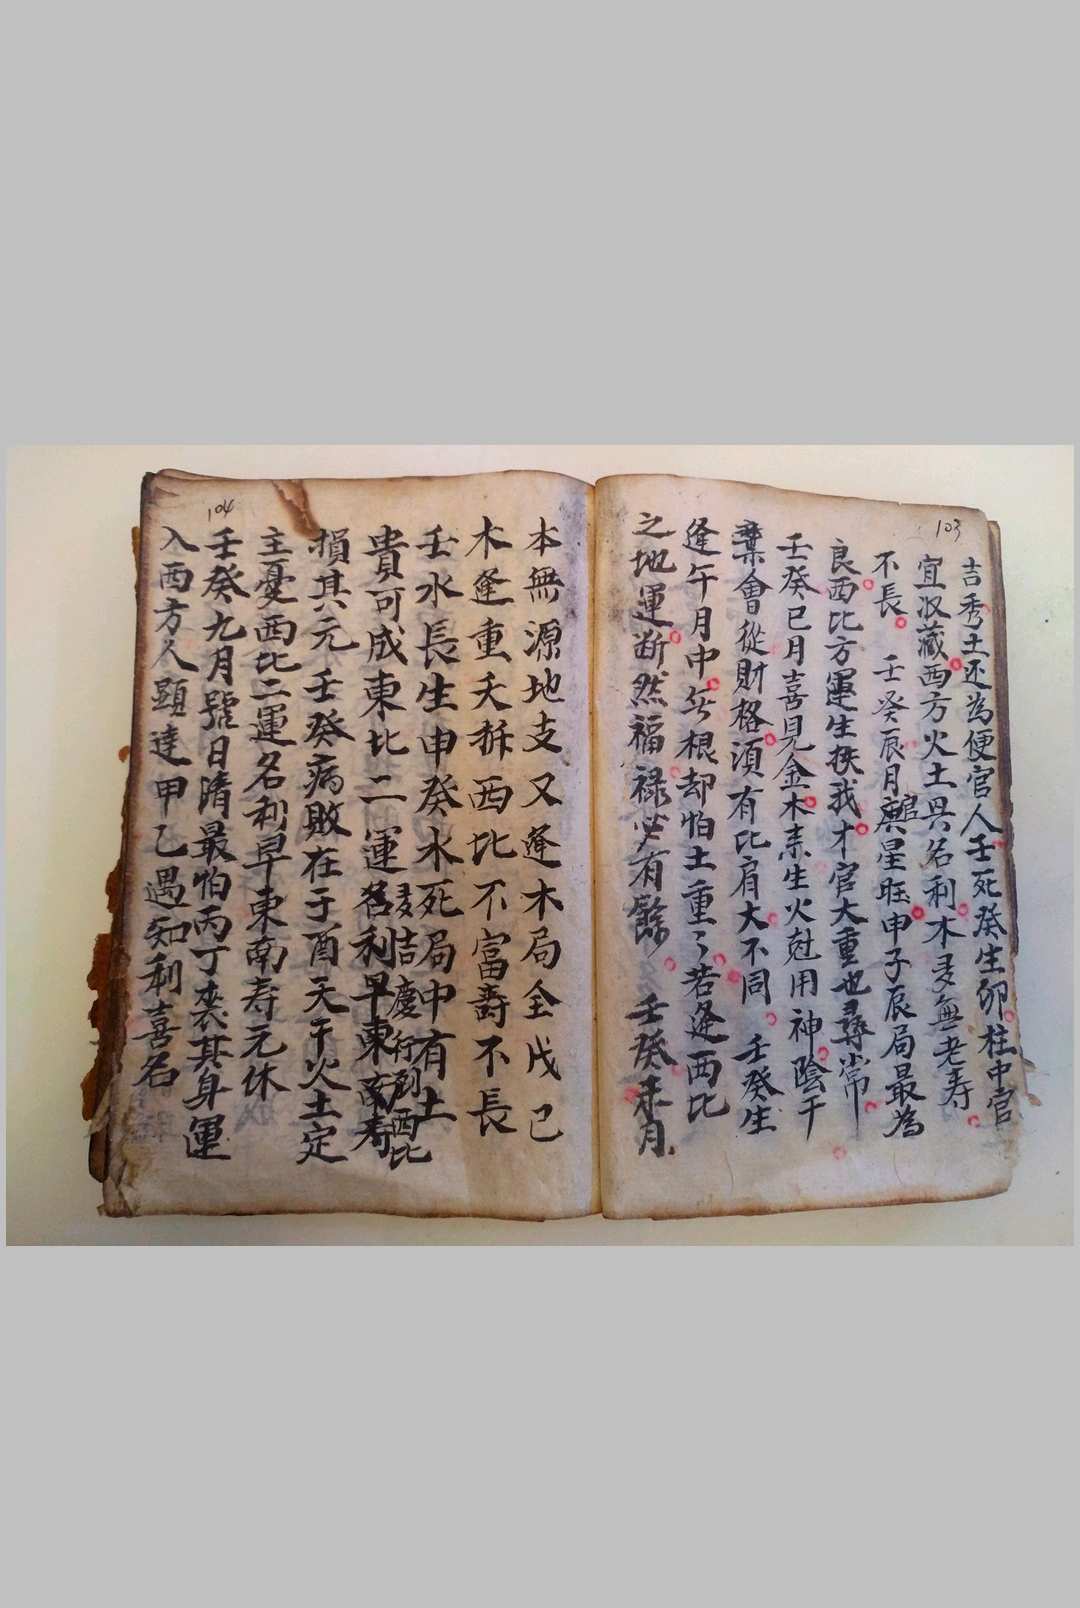 103
吉秀土还為便官人壬死癸生卯柱中官
宜收藏西方火土具名利木多無老寿
不長 壬癸辰月煞星旺申子辰局最為
良西比方運生扶我才官大重也尋常
壬癸巳月喜見金木未生火尅用神陰干
棄會從財格須有比肩大不同 壬癸生
逢午月中無根却怕土重々若逢西比
之地運断然福禄必有餘 壬癸未月
104
本無源地支又逢木局全戊己
木逢重夭折西比不富壽不長
壬水長生申癸水死局中有土
吉慶行到西比
貴可成東比二運名利早東南寿
損其元壬癸病敗在于酉天干火土定
主憂西比二運名利早東南寿元休
壬癸九月號日清最怕丙丁來其身運
入西方人顕達甲乙遇知利喜名